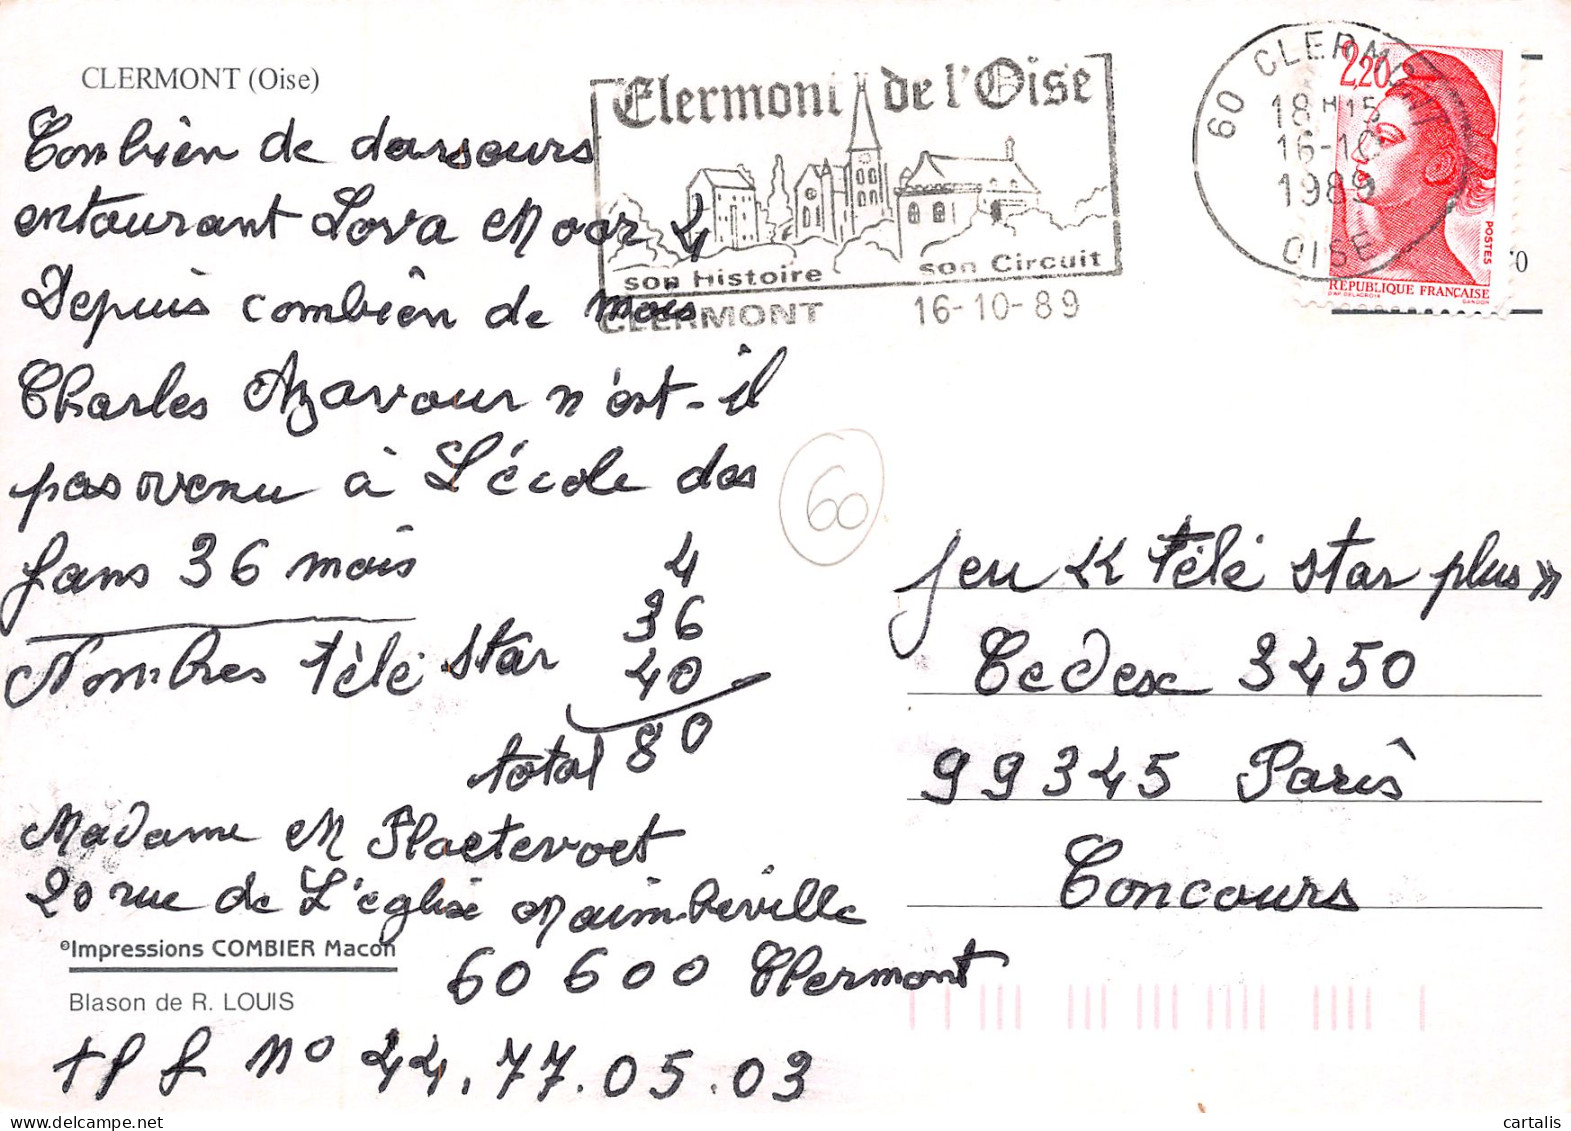 CLERMONT (Oise)
Combien de danseurs
entourant Lova Moor 4
Depuis combien de mois
Charles Azavour n'est-il
pas venu à L'école des
fans 36 mois
4
36
Nombres télé star 40
total 80
Madame M Plaetevoet
20 rue de L'église Maimbeville
60 600 Clermont
©Impressions COMBIER Macon
Blason de R. LOUIS
N° 44.77.05.03
Clermont de l'Oise
son Histoire son Circuit
CLERMONT 16-10-89
60 CLERMONT
18H15
16-10
1989
OISE
2,20
POSTES
RÉPUBLIQUE FRANÇAISE
60
jeu « télé star plus »
Cedex 3450
99345 Paris
Concours
cartalis